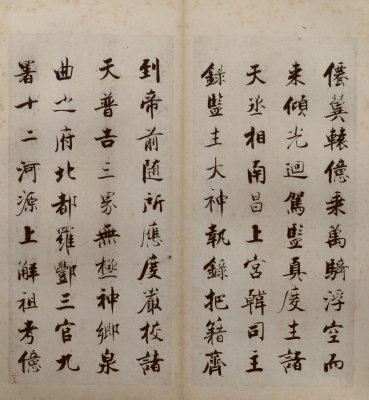 僊翼轅億乘萬騎浮空而
来傾光迴駕監真度生諸
天丞相南昌上宮韓司主
錄監生大神執錄把籍齊
到帝前随所應度嚴校諸
天普告三界無極神鄉泉
曲之府北都羅酆三官九
署十二河源上解祖考億